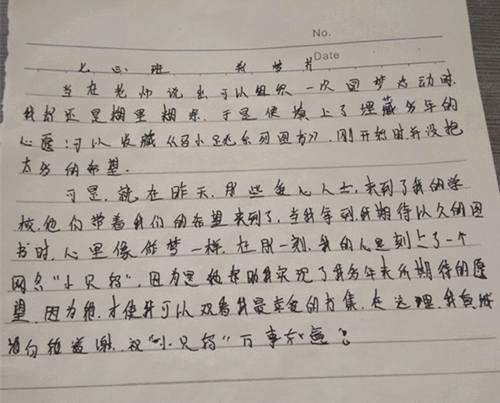 No.
Date
七 三 班 我 梦
当 在 老 师 说 出 可 以 组 织 一 次 圆 梦 活 动 时,
我 却 还 是 糊 里 糊 涂, 于 是 便 填 上 了 埋 藏 多 年 的
心 愿: 可 以 收 藏 系 列 图 书》, 刚 开 始 时 我 没 抱
太 多 的 希 望.
可 是, 就 在 昨 天, 那 些 爱 心 人 士, 来 到 了 我 的 学
校, 他 们 带 着 我 们 的 希 望 来 到 了, 当 我 拿 到 我 期 待 以 久 的 图
书 时, 心 里 像 做 梦 一 样, 在 那 一 刻, 我 的 心 里 刻 上 了 一 个
网 名 “小 只 因 为 是 他 帮 助 我 实 现 了 我 多 年 来 所 期 待 的 愿
望, 因 为 他, 才 使 我 可 以 观 看 我 最 的 在 这 理, 我 真 诚
向 他 道 谢, 祝 “小 只 万 事 如 意